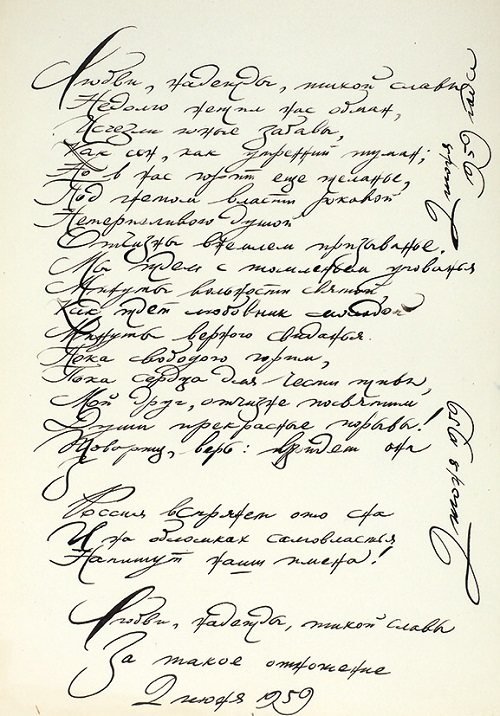 Любви, надежды, тихой славы
Недолго нежил нас обман,
Исчезли юные забавы,
Как сон, как утренний туман;
Но в нас горит еще желанье,
Под гнетом власти роковой
Нетерпеливою душой
Отчизны внемлем призыванье.
Мы ждем с томленьем упованья
Минуты вольности святой,
Как ждет любовник молодой
Минуты верного свиданья.
Пока свободою горим,
Пока сердца для чести живы,
Мой друг, отчизне посвятим
Души прекрасные порывы!
Товарищ, верь: придет она
З
Россия вспрянет ото сна
И на обломках самовластья
Напишут наши имена!
Любви, надежды, тихой славы
За такое отношение
2 июня 1959